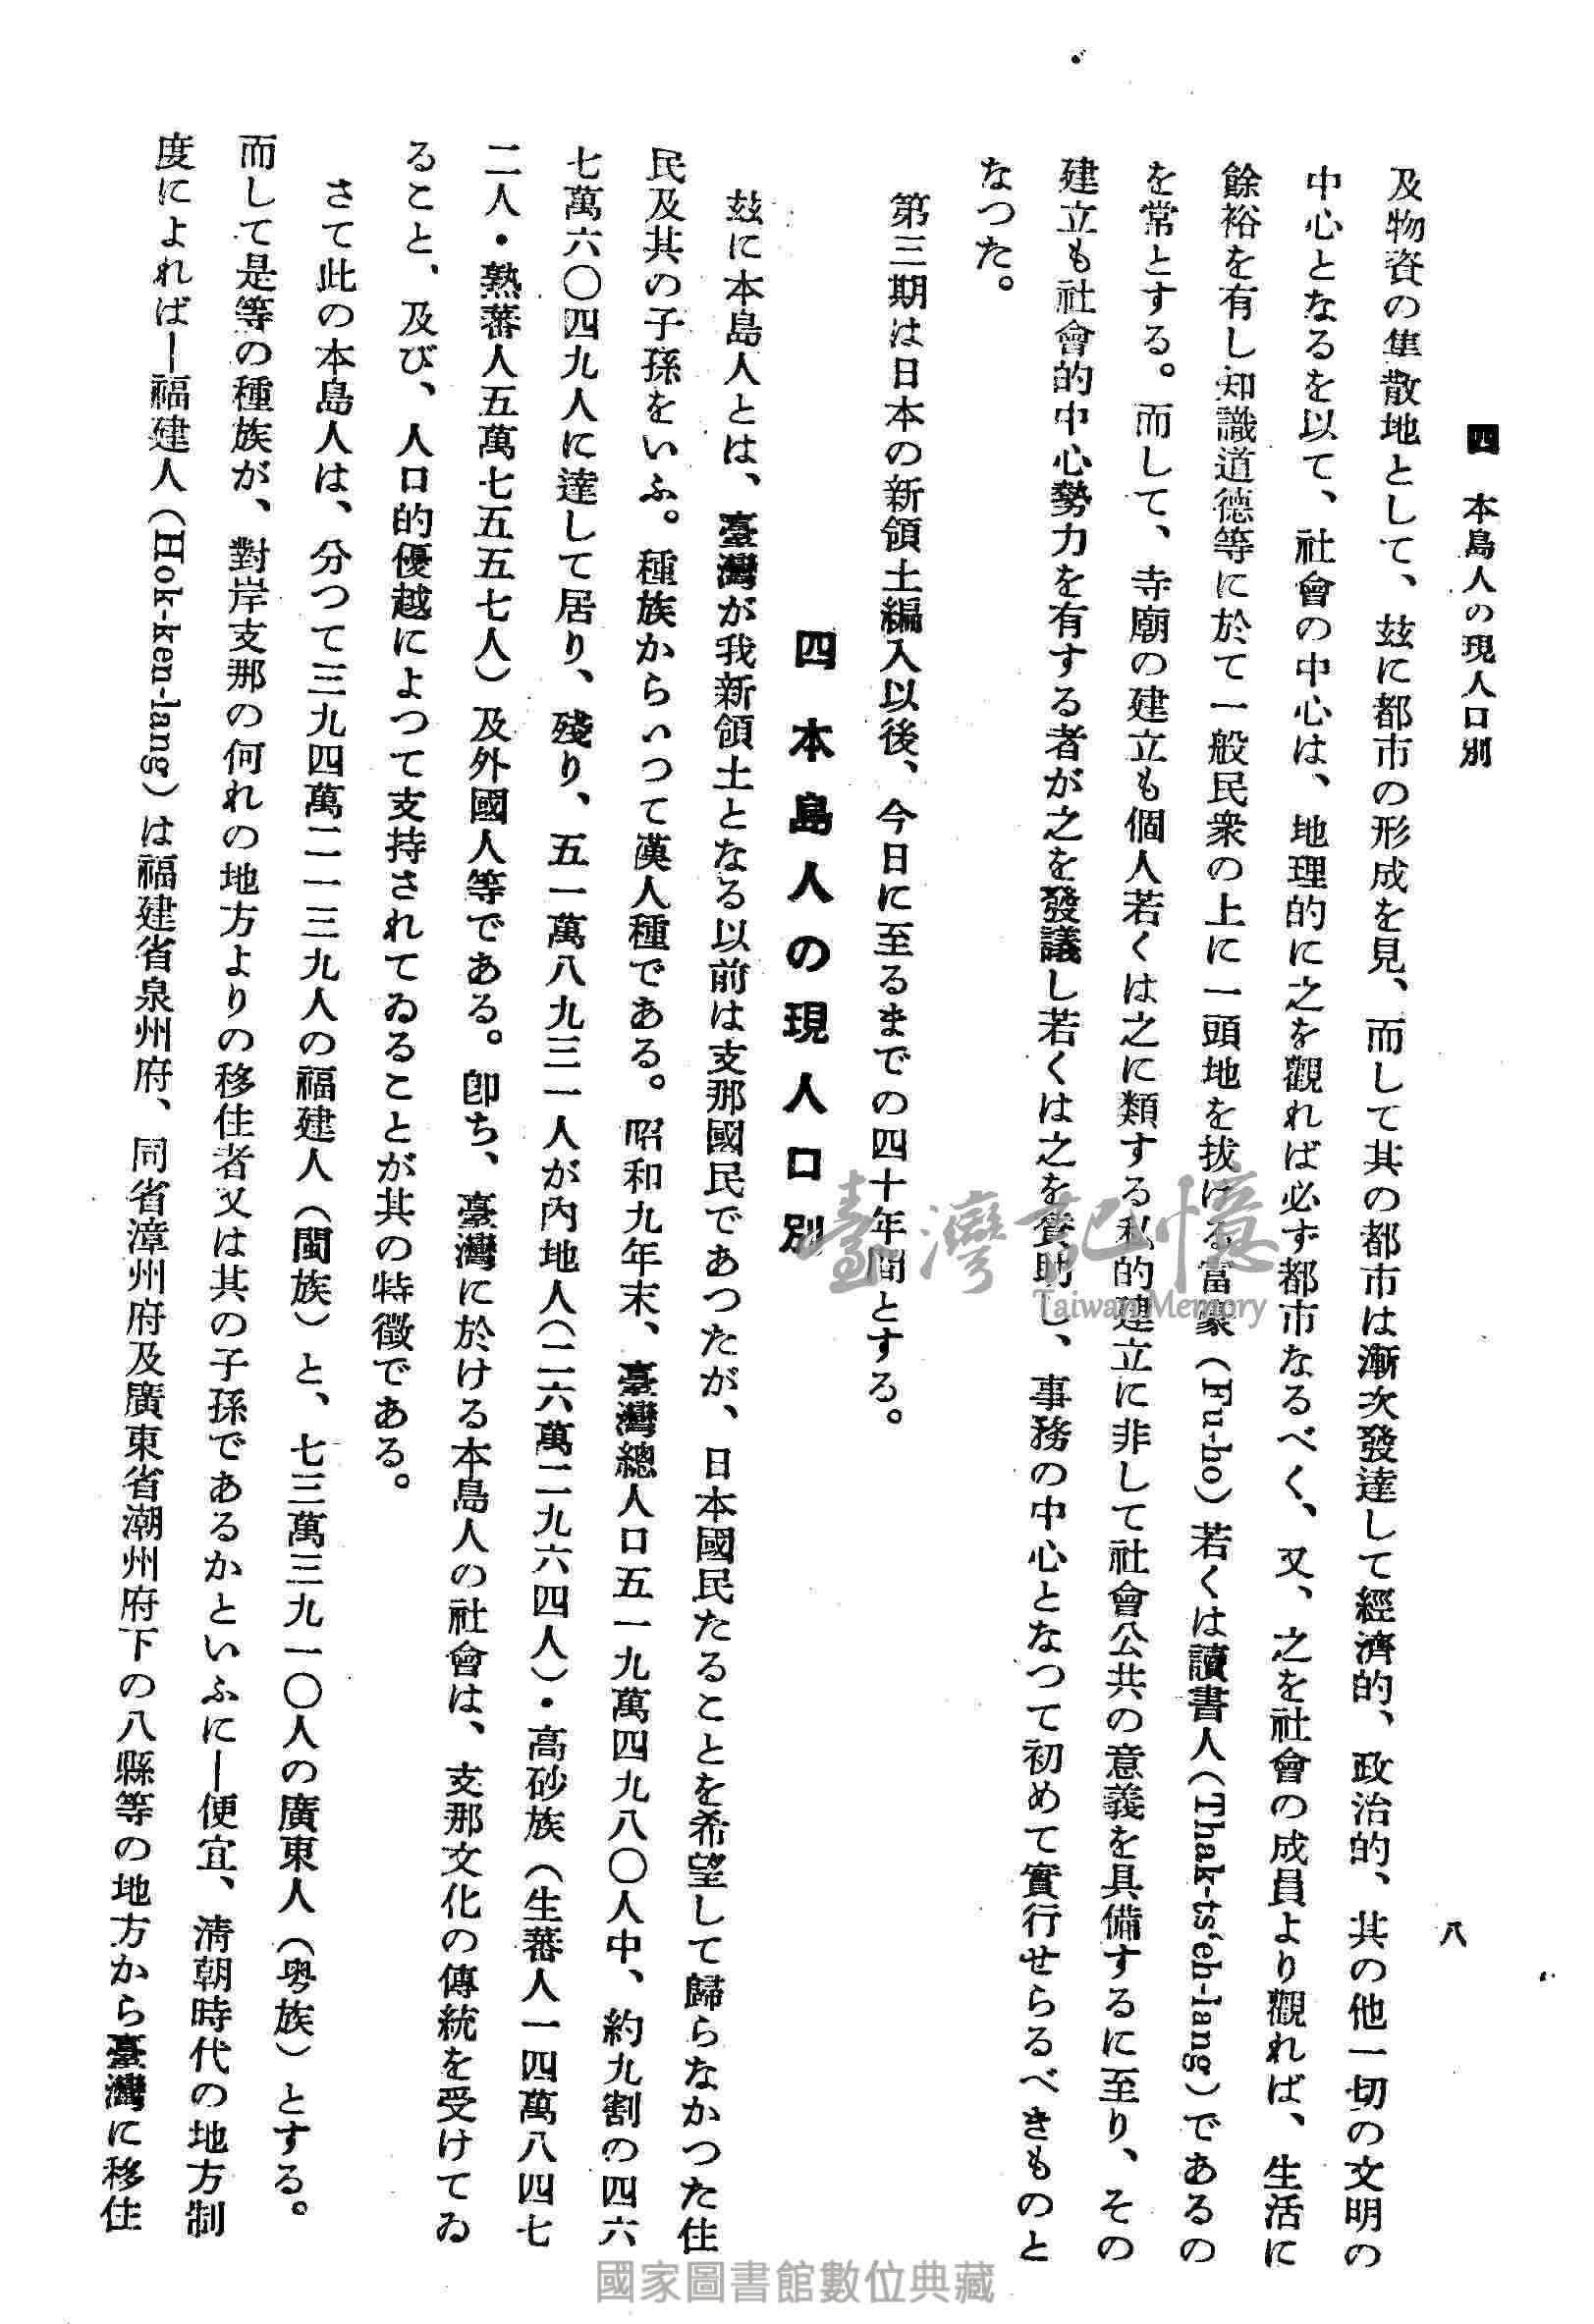 四 本島人の現人口別
八
及物資の集散地として、玆に都市の形成を見、而して其の都市は漸次發達して經濟的、政治的、其の他一切の文明の
中心となるを以て、社會の中心は、地理的に之を觀れば必ず都市なるべく、又、之を社會の成員より觀れば、生活に
餘裕を有し知識道德等に於て一般民衆の上に一頭地を拔ける富豪(Fu-ho)若くは讀書人(Thak-ts‘eh-lang)であるの
を常とする。而して、寺廟の建立も個人若くは之に類する私的建立に非して社會公共の意義を具備するに至り、その
建立も社會的中心勢力を有する者が之を發議し若くは之を賛助し、事務の中心となつて初めて實行せらるべきものと
なつた。
第三期は日本の新領土編入以後、今日に至るまでの四十年間とする。
四 本島人の現人口別
玆に本島人とは、臺灣が我新領土となる以前は支那國民であつたが、日本國民たることを希望して歸らなかつた住
民及其の子孫をいふ。種族からいつて漢人種である。昭和九年末、臺灣總人口五一九萬四九八〇人中、約九割の四六
七萬六〇四九人に達して居り、殘り、五一萬八九三一人が內地人(二六萬二九六四人)・高砂族(生蕃人一四萬八四七
二人・熟蕃人五萬七五五七人)及外國人等である。卽ち、臺灣に於ける本島人の社會は、支那文化の傳統を受けてゐ
ること、及び、人口的優越によつて支持されてゐることが其の特徵である。
さて此の本島人は、分つて三九四萬二一三九人の福建人(閩族)と、七三萬三九一〇人の廣東人(粤族)とする。
而して是等の種族が、對岸支那の何れの地方よりの移住者又は其の子孫であるかといふに—便宜、淸朝時代の地方制
度によれば—福建人(Hok-ken-lang)は福建省泉州府、同省漳州府及廣東省潮州府下の八縣等の地方から臺灣に移住
臺灣記憶
Taiwan Memory
國家圖書館數位典藏